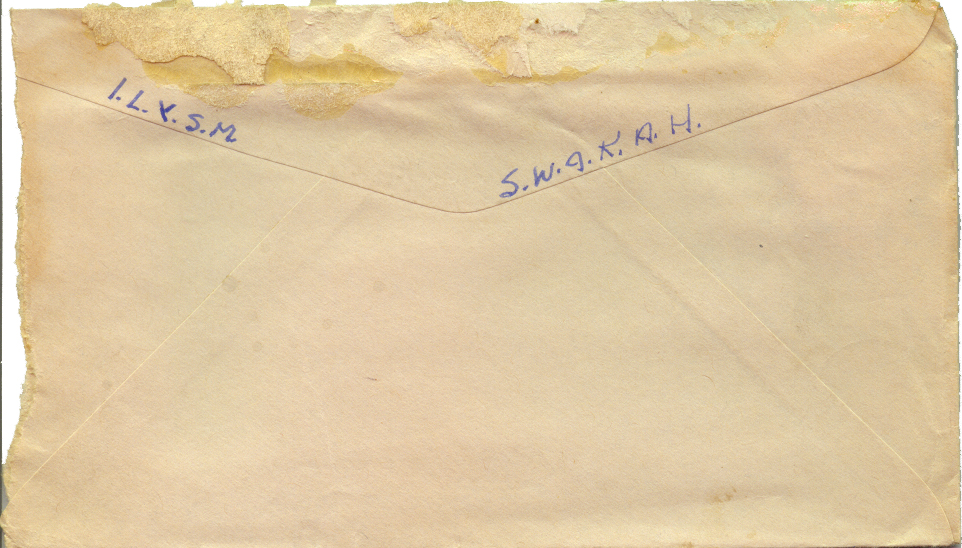 I.L.Y.S.M
S.W.A.K.A.H.